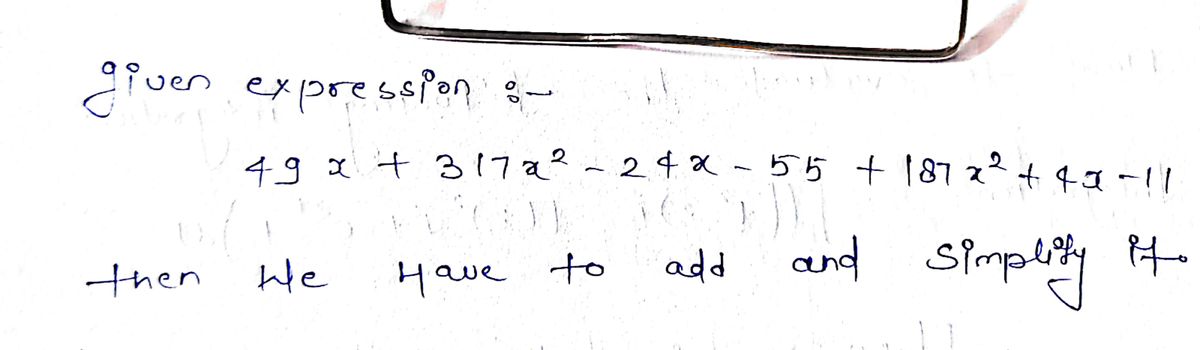 given expression :-
49 x + 317x² - 24x - 55 + 187x² + 4x - 11
then We Have to add and simplify it.